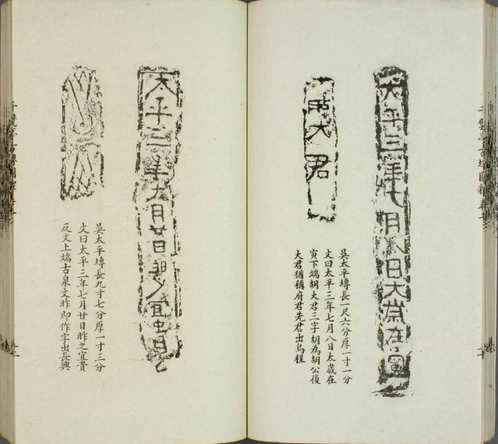 太平三年七月八日太歲在寅
胡大君
吳太平塼長一尺六分厚一寸一分
文曰太平三年七月八日太歲在
寅下端胡大君三字胡為胡公後
大君猶稱府君先君出烏程
太平三年七月廿日昨之宜貴
吳太平塼長九寸七分厚一寸三分
文曰太平三年七月廿日昨之宜貴
反文上端古泉文昨即作字出長興